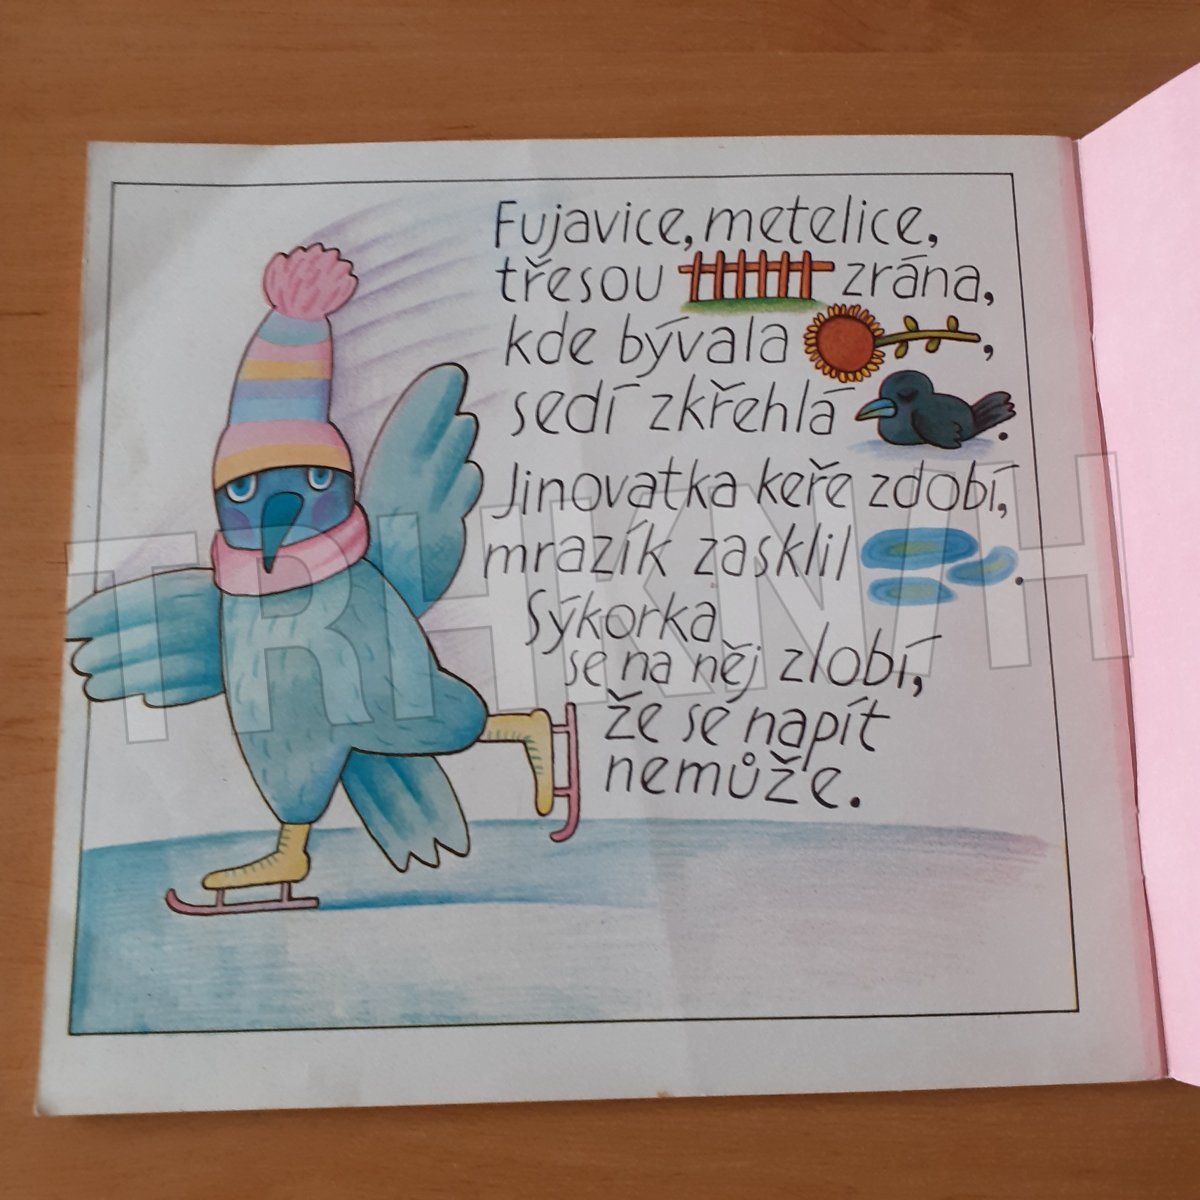 Fujavice, metelice,
třesou zrána,
kde bývala ,
sedí zkřehlá .
Jinovatka keře zdobí,
mrazík zasklil .
Sýkorka
se na něj zlobí,
že se napít
nemůže.
TRHKNIH